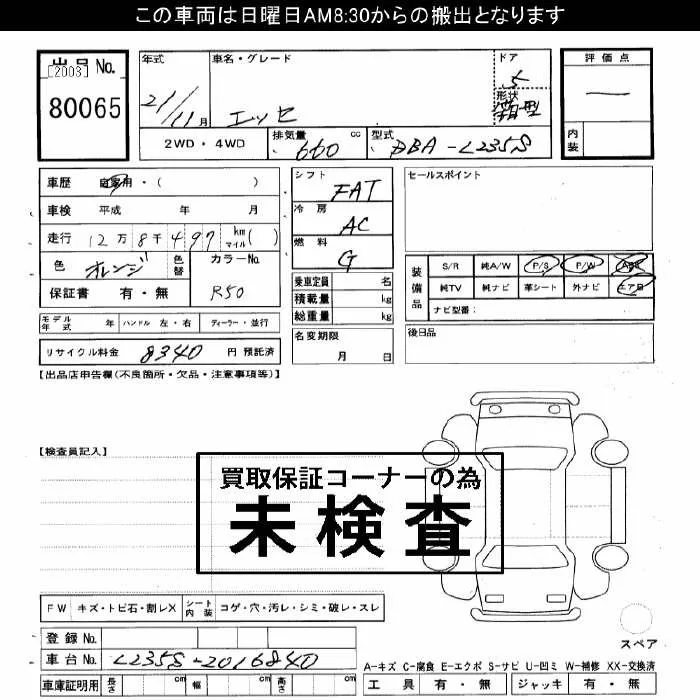 この車両は日曜日AM8:30からの搬出となります
出品No.
[2003]
80065
年式
21/11月
車名・グレード
エッセ
ドア
5
形状
箱型
評価点
―
内装
2WD・4WD
排気量 660 cc
型式 DBA-L235S
車歴 自家用・( )
車検 平成 年 月
走行 12万8千497 km マイル( )
色 オレンジ 色替
カラーNo. R50
保証書 有・無
シフト FAT
冷房 AC
燃料 G
乗車定員 名
積載量 kg
総重量 kg
名変期限 月 日
セールスポイント
装備品
S/R 純A/W P/S P/W ABS
純TV 純ナビ 革シート 外ナビ エアB
ナビ型番:
後日品
モデル年式 年 ハンドル 左・右 ディーラー・並行
リサイクル料金 8340 円 預託済
【出品店申告欄(不良箇所・欠品・注意事項等)】
【検査員記入】
買取保証コーナーの為
未検査
FW キズ・トビ石・割レX シート内装 コゲ・穴・汚レ・シミ・破レ・スレ
登録No.
車台No. L235S-2016840
車庫証明用 長さ cm 幅 cm 高さ cm
スペア
A-キズ C-腐食 E-エクボ S-サビ U-凹ミ W-補修 XX-交換済
工具 有・無 ジャッキ 有・無